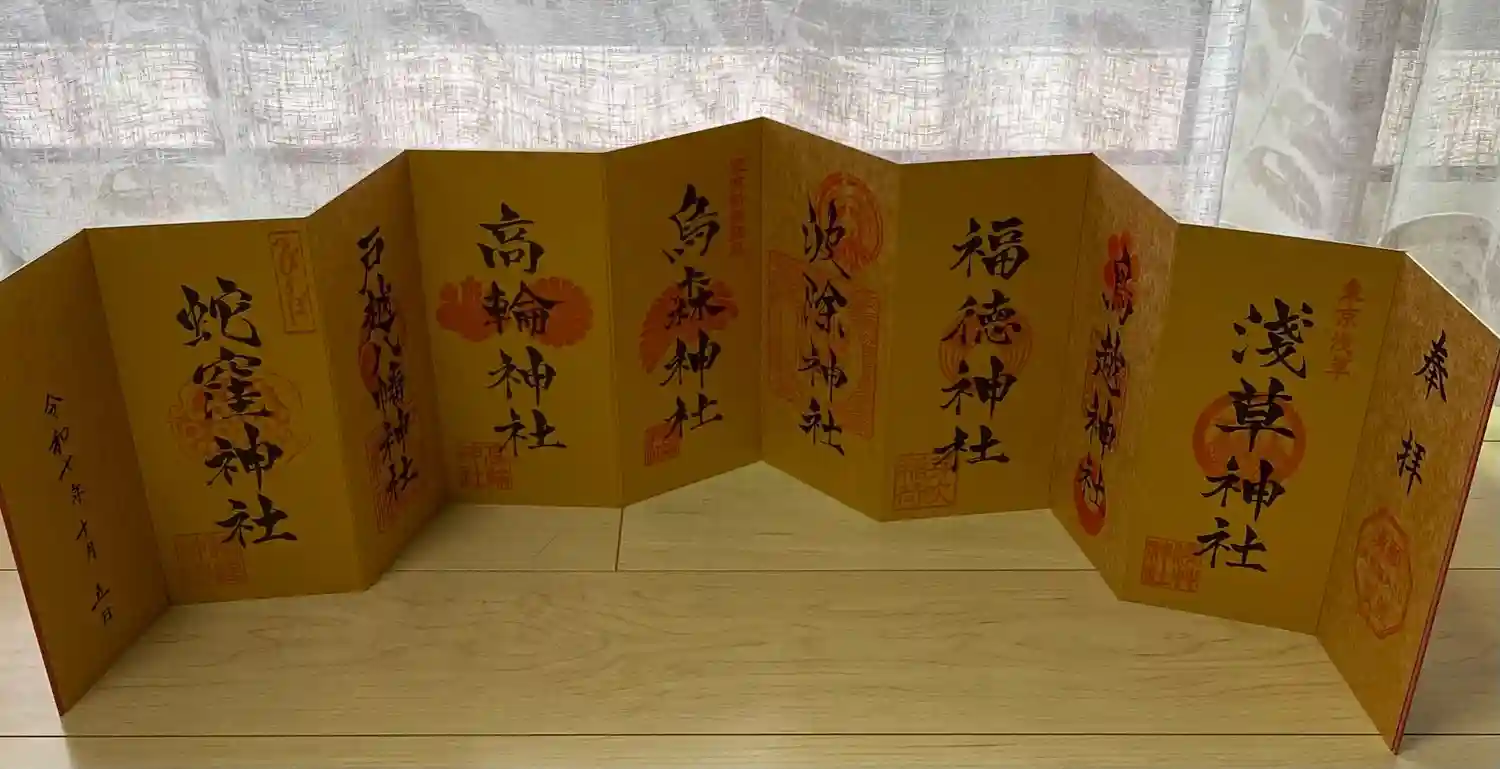 奉拝
東京浅草
淺草神社
鳥越神社
福徳神社
波除神社
烏森神社
高輪神社
戸越八幡神社
蛇窪神社
令和七年十月五日